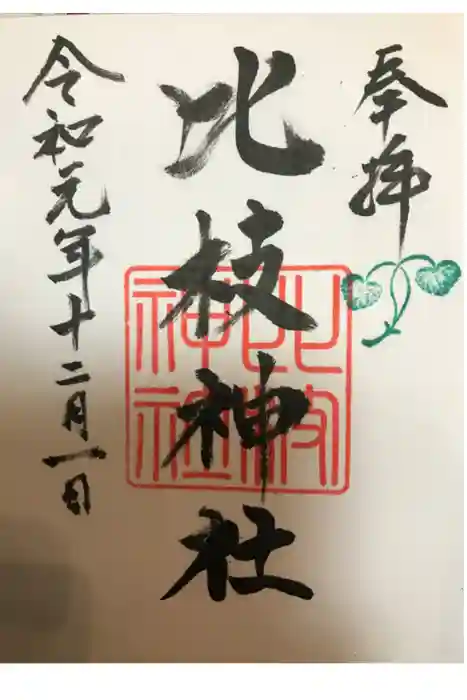 奉拝
比枝神社
比枝
神社
令和元年十二月一日